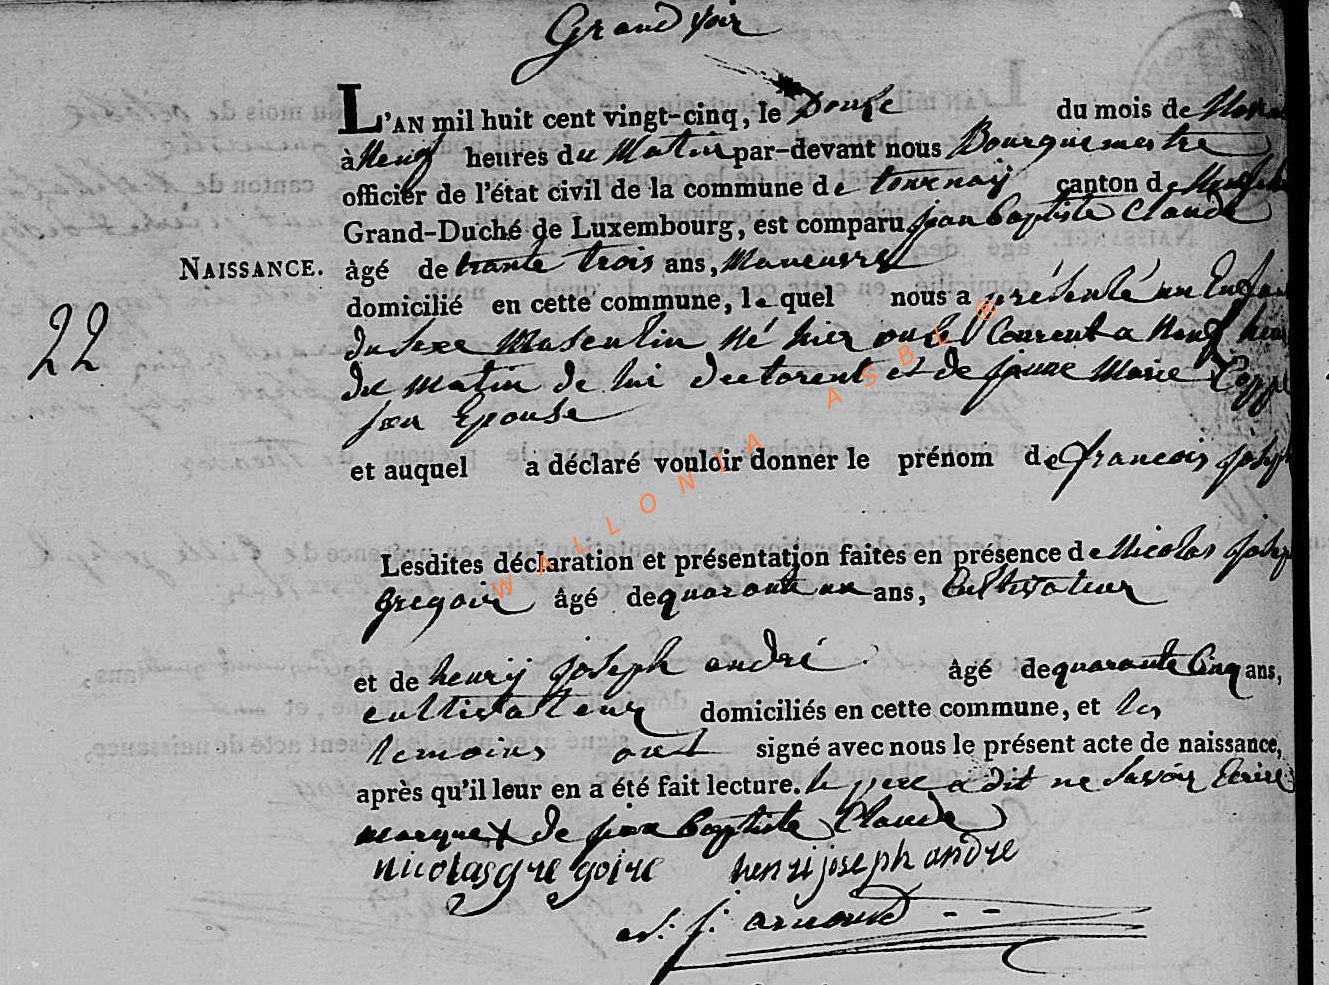 Grand Voir
L'AN mil huit cent vingt-cinq, le Douze du mois de
à Neuf heures du Matin par-devant nous Bourguemestre
officier de l'état civil de la commune de tournay canton de
Grand-Duché de Luxembourg, est comparu jean Baptiste Claude
NAISSANCE. âgé de trante trois ans, Maneuvre
domicilié en cette commune, le quel nous a présenté un Enfan
22
du sexe Masculin Né hier onze Courent a Neuf heu
du matin de lui declarent et de jeanne Marie
son Epouse
et auquel a déclaré vouloir donner le prénom de francois joseph
Lesdites déclaration et présentation faites en présence de Nicolas joseph
gregoire âgé de quarante un ans, Cultivateur
et de henrij joseph andré âgé de quarante Cinq ans,
cultivatteur domiciliés en cette commune, et les
temoins ont signé avec nous le présent acte de naissance,
après qu'il leur en a été fait lecture. le pere a dit ne savoir Ecrire
marque X de jean Baptiste Claude
nicolas gregoire henri joseph andre
arnould
WALLONIA ASBL ®